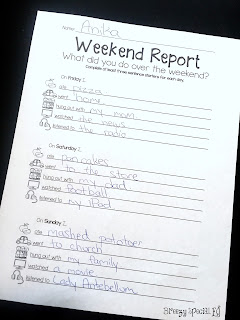 Name: Anika
Weekend Report
What did you do over the weekend?
Complete at least three sentence starters for each day.
On Friday I...
ate pizza
went home
hung out with my mom
watched the news
listened to the radio
On Saturday I...
ate pancakes
went to the store
hung out with my dad
watched football
listened to my iPad
On Sunday I...
ate mashed potatoes
went to church
hung out with my family
watched a movie
listened to Lady Antebellum
Breezy Special Ed